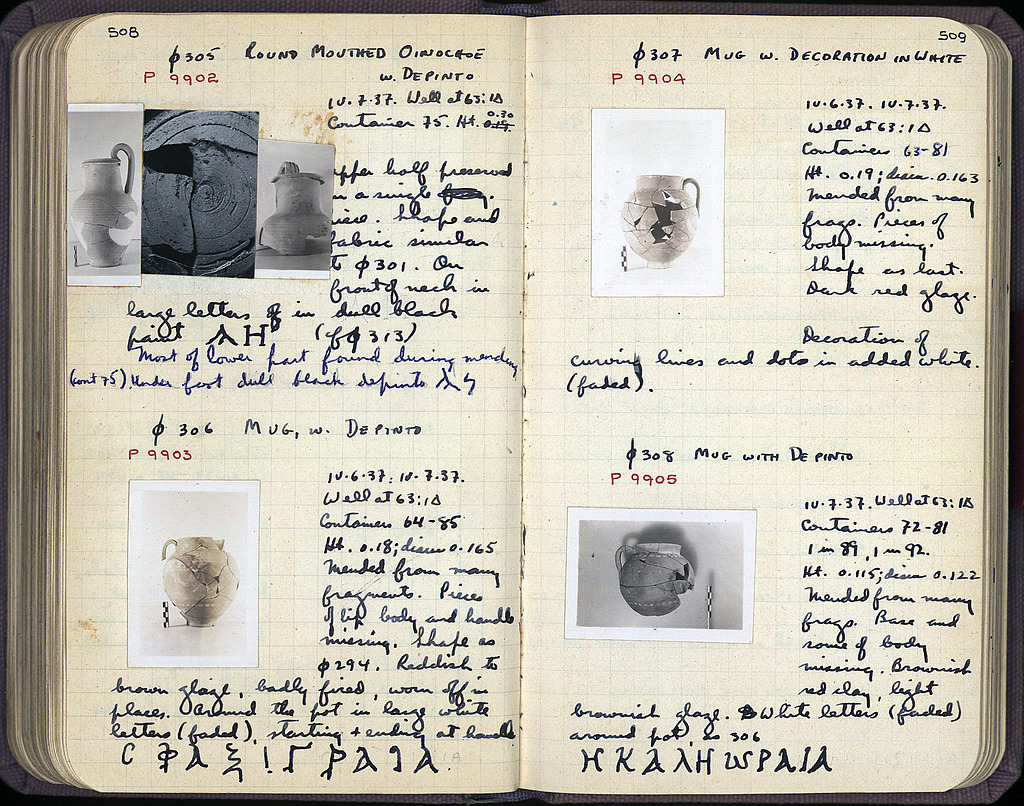 508
φ305 ROUND MOUTHED OINOCHOE
W. DEPINTO
P 9902
IV.7.37. Well at 63:ΙΔ
0.30
Container 75. Ht. 0.19.
upper half preserved
in a single
piece. Shape and
fabric similar
to φ301. On
front of neck in
large letters in dull black
paint ΛΗ (cf φ313)
Most of lower part found during mending
(cont 75) Under foot dull black depinto
φ 306 MUG, W. DEPINTO
P 9903
IV.6.37; IV.7.37.
Well at 63:ΙΔ
Containers 64-85
Ht. 0.18; diam 0.165
Mended from many
fragments. Pieces
of lip body and handle
missing. Shape as
φ294. Reddish to
brown glaze, badly fired, worn off in
places. Around the pot in large white
letters (faded), starting + ending at handle
509
φ307 MUG W. DECORATION IN WHITE
P 9904
IV.6.37. IV.7.37.
Well at 63:ΙΔ
Containers 63-81
Ht. 0.19; diam. 0.163
Mended from many
frags. Pieces of
body missing.
Shape as last.
Dark red glaze.
Decoration of
curving lines and dots in added white.
(faded).
φ308 MUG WITH DEPINTO
P 9905
IV.7.37. Well at 63:ΙΔ
Containers 72-81
1 in 89, 1 in 92.
Ht. 0.115; diam 0.122
Mended from many
frags. Base and
some of body
missing. Brownish
red clay, light
brownish glaze. White letters (faded)
around pot, as 306
ΗΚΑΛΗωΡΑΙΑ